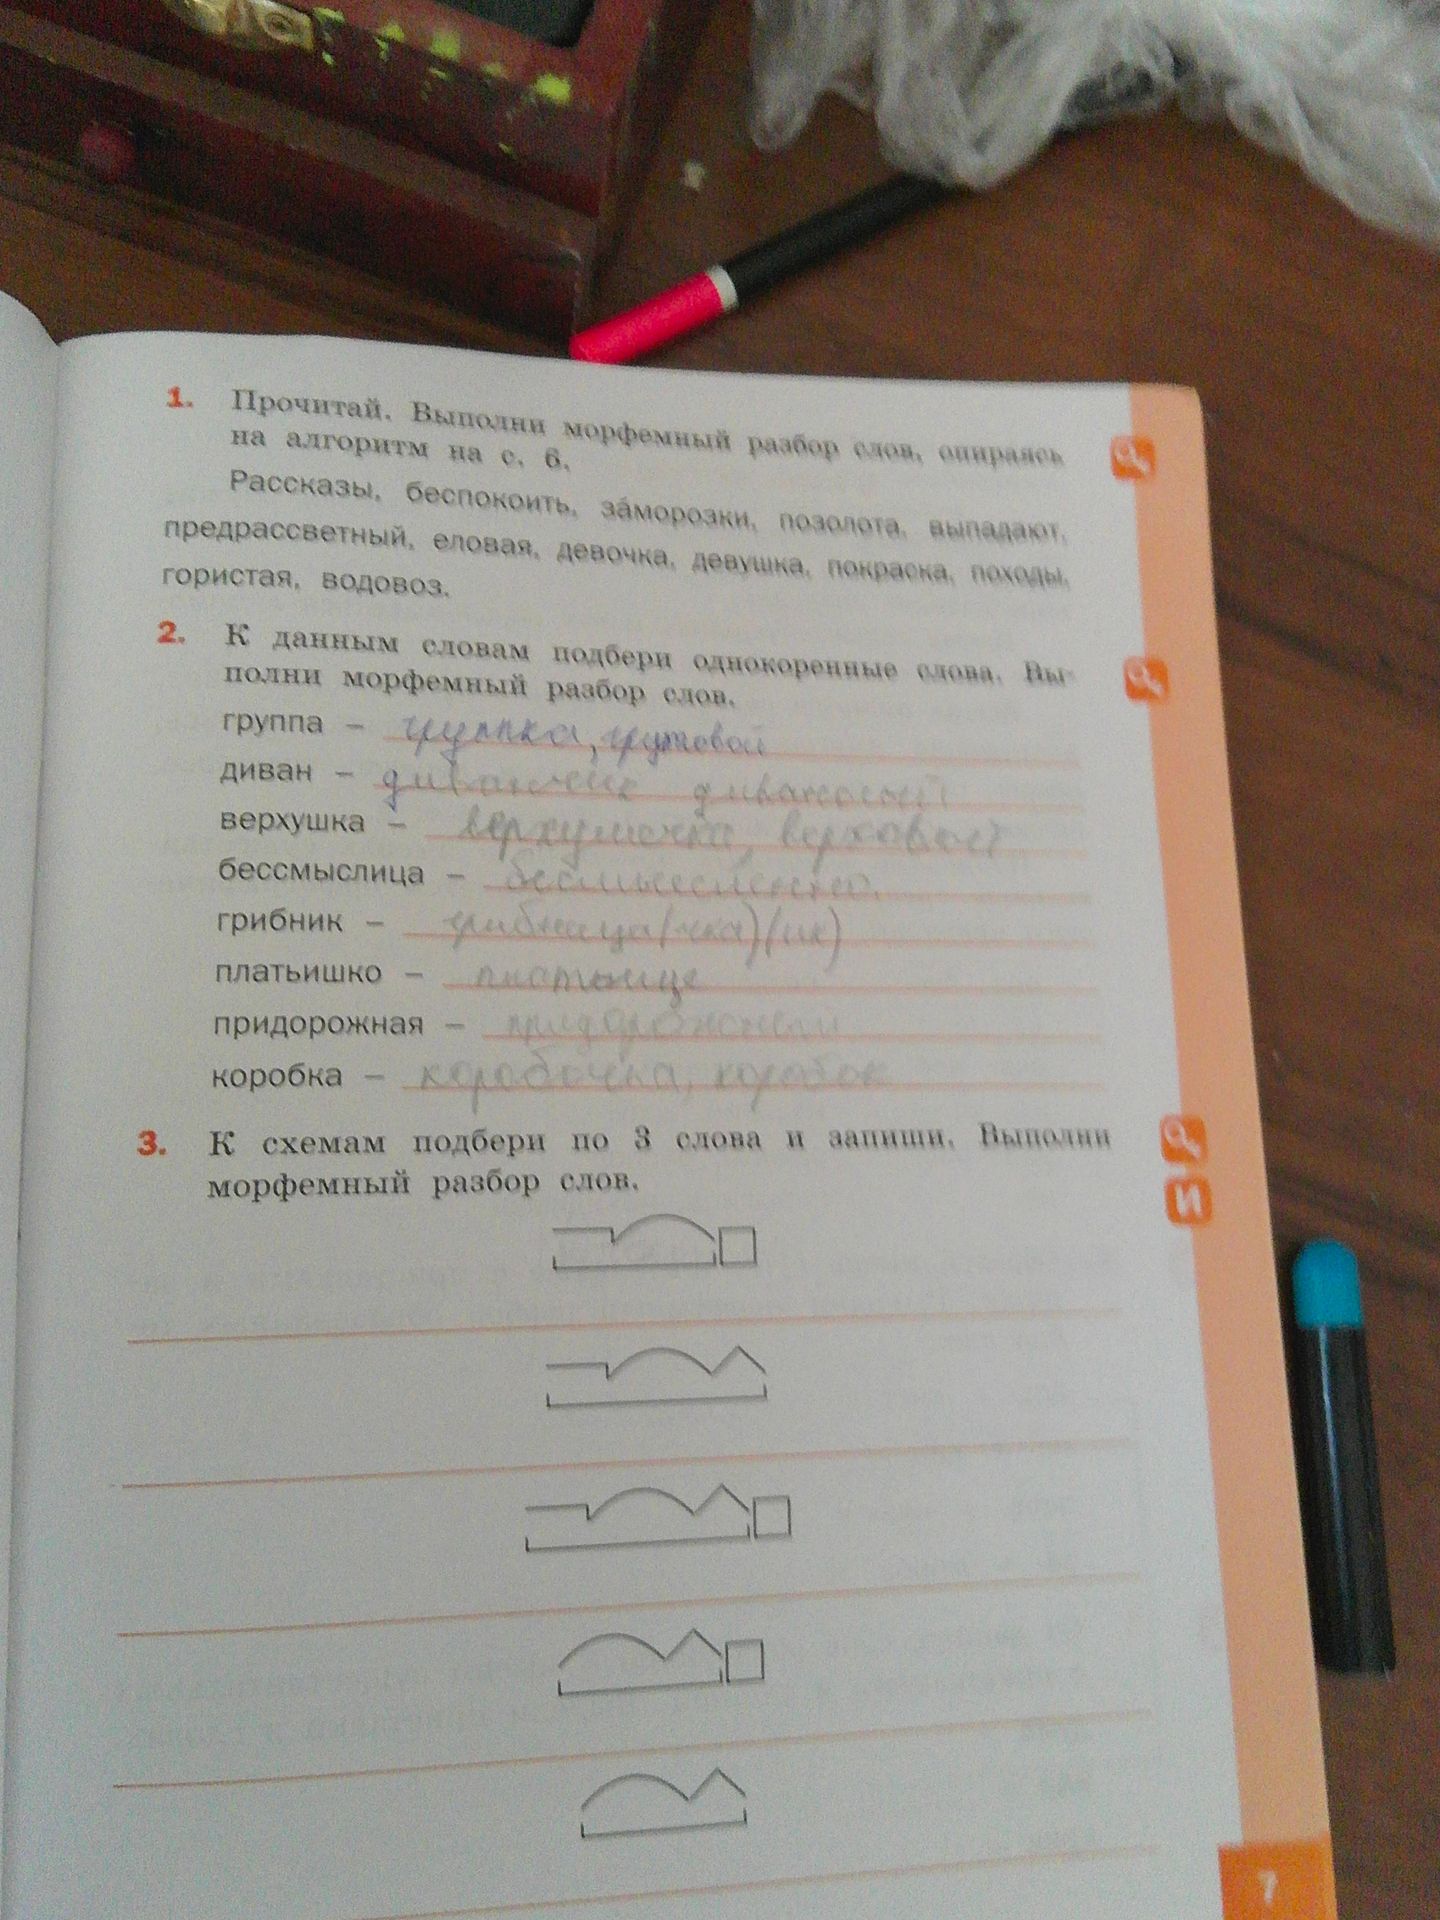 1. Прочитай. Выполни морфемный разбор слов, опираясь
на алгоритм на с. 6.
Рассказы, беспокоить, за́морозки, позолота, выпадают,
предрассветный, еловая, девочка, девушка, покраска, походы,
гористая, водовоз.
2. К данным словам подбери однокоренные слова. Вы-
полни морфемный разбор слов.
группа – групка, груповой
диван – диванчик диванный
верхушка – верхушечка, верховой
бессмыслица –
грибник – грибница(чка)(ик)
платьишко – платьице
придорожная –
коробка – коробочка, коробок
3. К схемам подбери по 3 слова и запиши. Выполни
морфемный разбор слов.
И
7